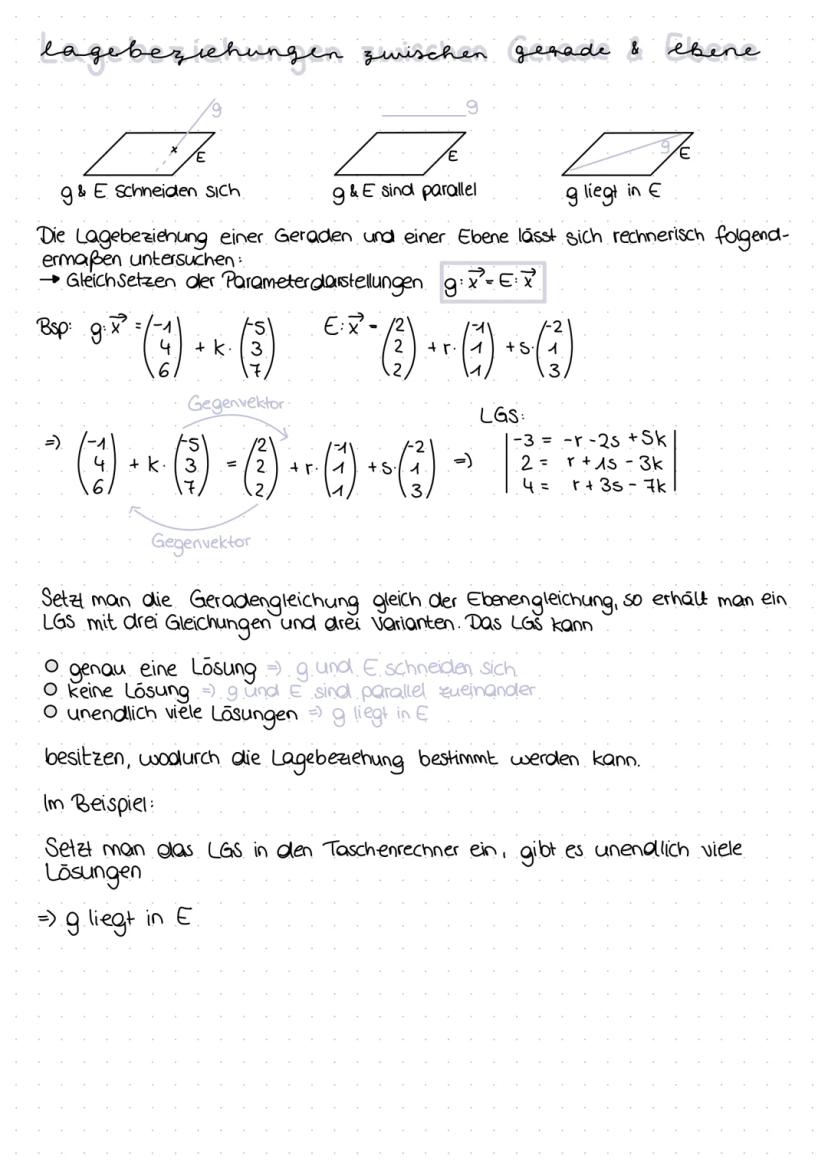 Lagebeziehungen zwischen Gerade & Ebene
g g g
E E E
g & E schneiden sich g & E sind parallel g liegt in E
Die Lagebeziehung einer Geraden und einer Ebene lässt sich rechnerisch folgend-
ermaßen untersuchen:
→ Gleichsetzen der Parameterdarstellungen g:x⃗ = E:x⃗
Bsp: g:x⃗ = (-1 4 6) + k· (-5 3 7) E:x⃗ = (2 2 2) + r· (-1 1 1) + s· (-2 1 3)
Gegenvektor
LGS:
=> (-1 4 6) + k· (-5 3 7) = (2 2 2) + r· (-1 1 1) + s· (-2 1 3) =>
|-3 = -r - 2s + 5k|
2 = r + 1s - 3k
4 = r + 3s - 7k
Gegenvektor
Setzt man die Geradengleichung gleich der Ebenengleichung, so erhält man ein
LGS mit drei Gleichungen und drei Varianten. Das LGS kann
O genau eine Lösung => g und E schneiden sich
O keine Lösung => g und E sind parallel zueinander
O unendlich viele Lösungen => g liegt in E
besitzen, wodurch die Lagebeziehung bestimmt werden kann.
Im Beispiel:
Setzt man das LGS in den Taschenrechner ein, gibt es unendlich viele
Lösungen
=> g liegt in E